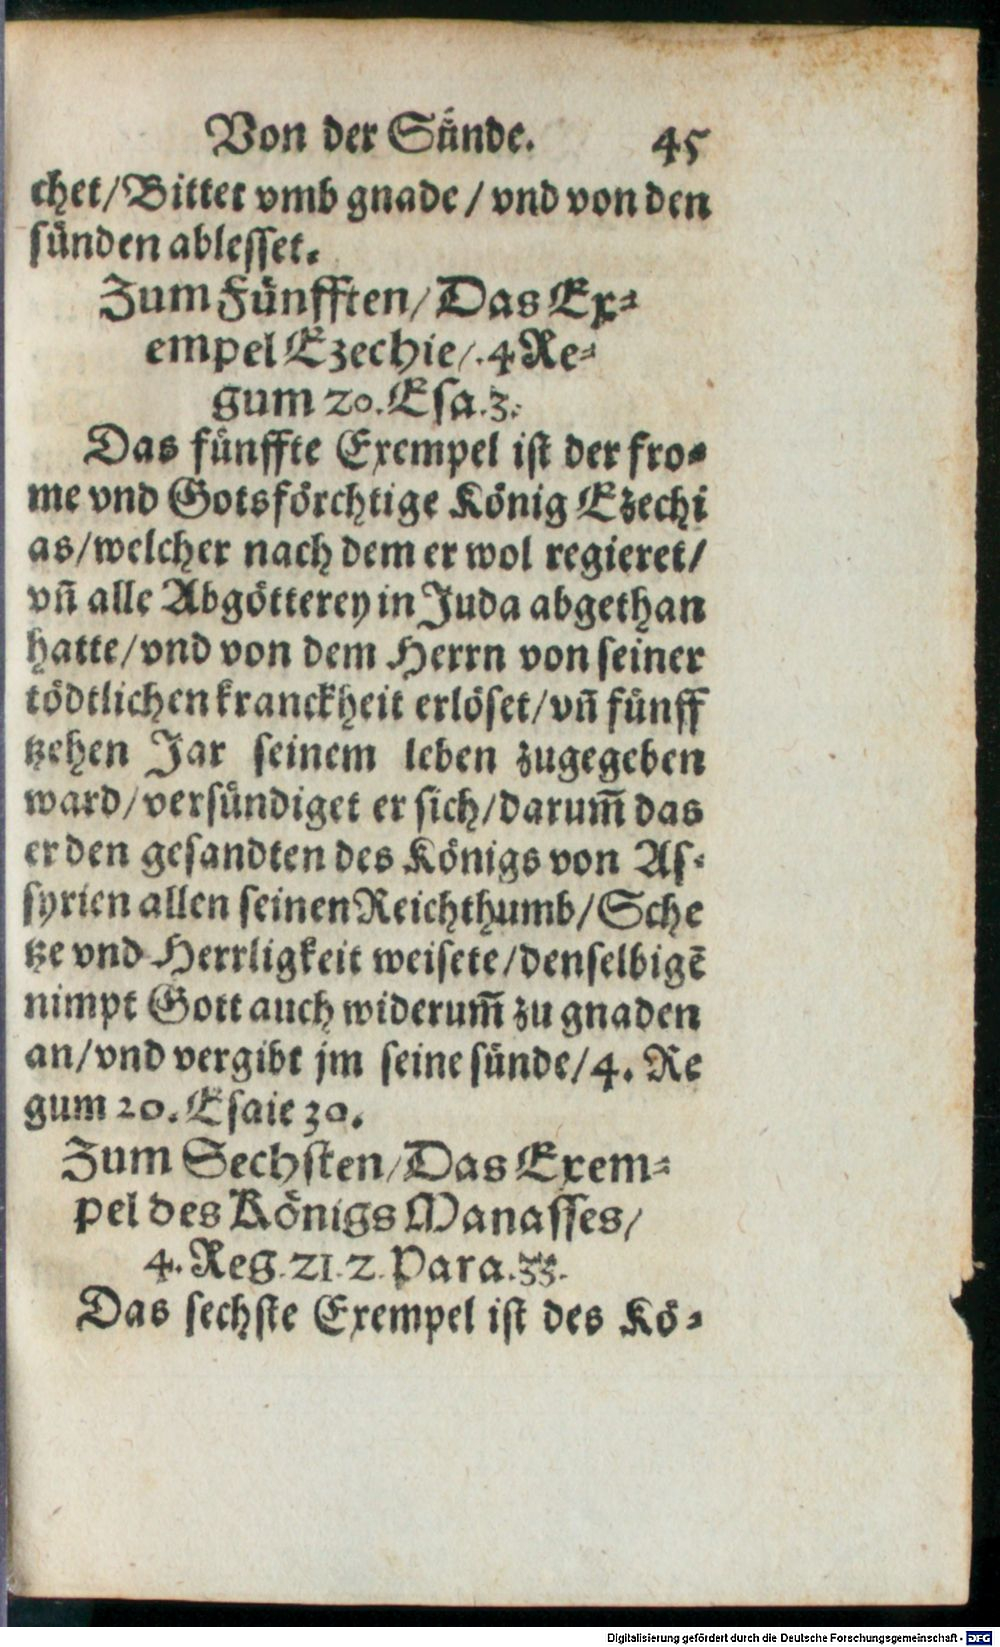 Von der Sünde. 45
chet/Bittet vmb gnade/vnd von den
sünden ablesset.
Zum Fünfften/Das Ex⸗
empel Ezechie/.4 Re⸗
gum 20. Esa.3.
Das fünffte Exempel ist der fro⸗
me vnd Gotsförchtige König Ezechi
as/welcher nach dem er wol regieret/
vñ alle Abgötterey in Juda abgethan
hatte/vnd von dem Herrn von seiner
tödtlichen kranckheit erlöset/vñ fünff
tzehen Jar seinem leben zugegeben
ward/versündiget er sich/darum̃ das
er den gesandten des Königs von As⸗
syrien allen seinen Reichthumb/Sche
tze vnd Herrligkeit weisete/denselbigẽ
nimpt Gott auch widerum̃ zu gnaden
an/vnd vergibt jm seine sünde/4. Re
gum 20. Esaie 30.
Zum Sechsten/Das Exem⸗
pel des Königs Manasses/
4. Reg. 21. 2. Para. 33.
Das sechste Exempel ist des Kö⸗
Digitalisierung gefördert durch die Deutsche Forschungsgemeinschaft - DFG